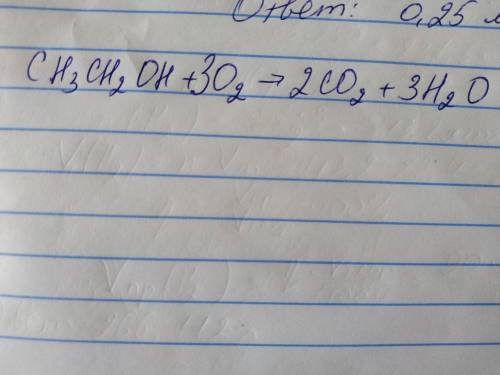 Ответ: 0,25
CH₃CH₂OH + 3O₂ → 2CO₂ + 3H₂O